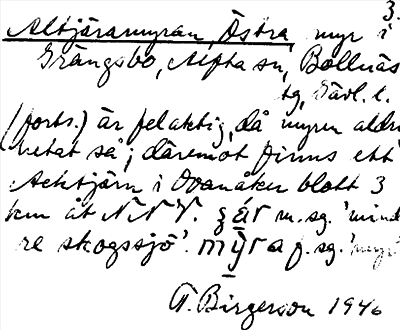 3.
Altjäramyran, Östra, myr i
Grängsbo, Alfta sn, Bollnäs
tg, Gävl. l.
(forts.) är felaktig, då myren aldrig
hetat så; däremot finns ett
Acktjärn i Ovanåker blott 3
km åt NNV. m. sg. 'mind
re skogssjö'. mȳra f. sg. 'myr'
T. Birgerson 1946